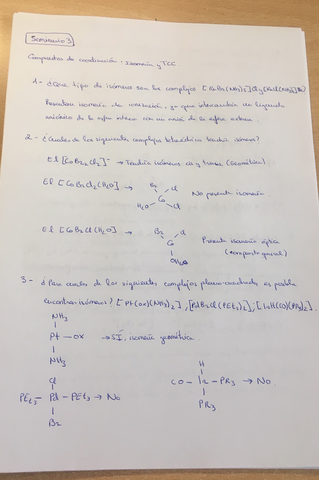 Seminario 3
Compuestos de coordinación: Isomería y TCC
1- ¿Que tipo de isómeros son los complejos [
Presentan isomería de ionización, ya que intercambian un ligando
aniónico de la esfera interna con un anión de la esfera externa.
2- ¿Cuales de los siguientes complejos tetraédricos tendrá isómeros?
El [CoBr2Cl2]- → Tendría isómeros cis y trans (Geométrica).
El [CoBrCl2(H2O)] →
Br
Cl
Co
H2O
Cl
No presenta isomería
El [CoBrCl(H2O)] →
Br
Cl
Co
Presenta isomería óptica
(compuesto quiral)
3- ¿Para cuales de los siguientes complejos plano-cuadrados es posible
encontrar isómeros? [Pt(ox)(NH3)2], [PdBrCl(PEt3)2], [IrH(CO)(PR3)2]
NH3
Pt - ox → SÍ, isomería geométrica.
NH3
Cl
PEt3 - Pd - PEt3 → No
Br
H
CO - Ir - PR3 → No
PR3